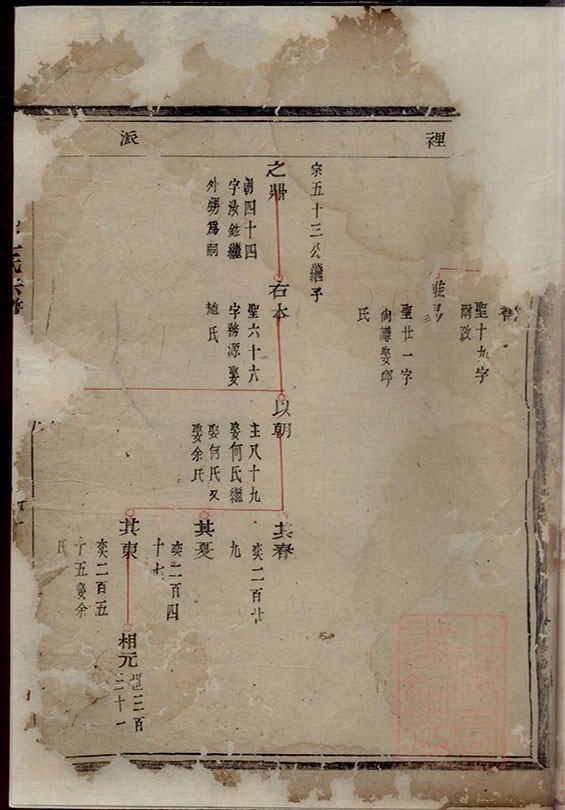 裡
派
聖十九字
爾政
聖廿一字
尚謙娶邱
氏
宗五十三公繼子
之鼎
朝四十四
字汝鉉繼
外甥為嗣
右本
聖六十六
字務源娶
趙氏
以朝
主八十九
娶何氏繼
娶何氏又
娶余氏
其春
奕二百廿
九
其夏
奕二百四
十七
其東
奕二百五
十五娶余
氏
相元
三百
三十一
氏宗譜